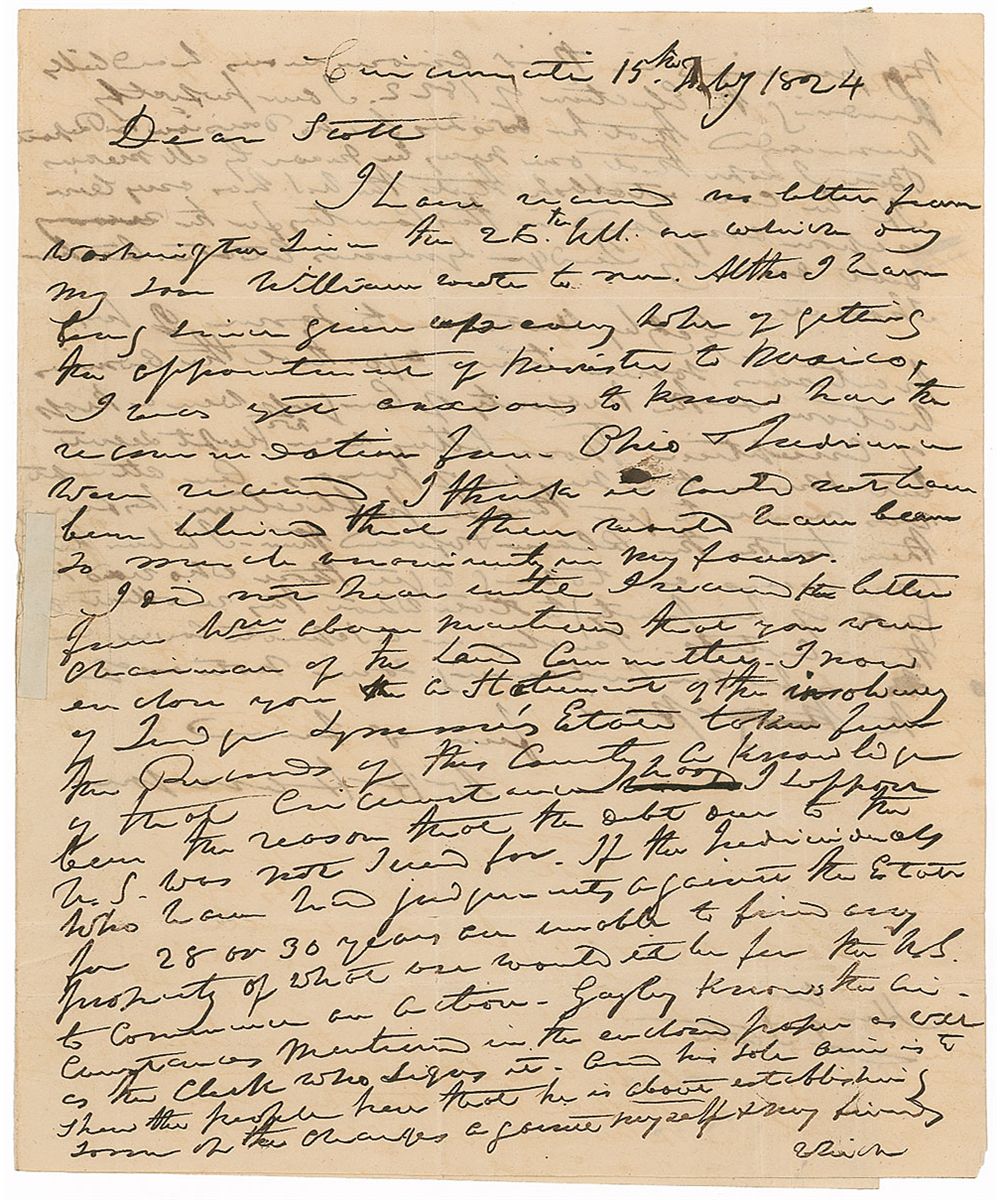 Cincinnati 15th Feby 1824
Dear Scott
I have received no letter from
Washington since the 25th Ult. on which day
my son William wrote to me. Altho I have
long since given up every hope of getting
the appointment of Minister to Mexico,
I was yet anxious to know how the
recommendation from Ohio & Indiana
were received. I think it could not have
been believed that there would have been
so much unanimity in my favor.
I did not hear until I received the letter
from Wm above mentioned that you were
chairman of the Land Committee. I now
enclose you the a Statement of the insolvency
of Judge Symmes's Estate taken from
the Records of this County. A knowledge
of that Circumstance has I suppose
been the reason that the debt due to the
U.S. was not sued for. If the Individuals
who have had judgments against the Estate
for 28 or 30 years are unable to find any
property of what use would it be for the U.S.
to commence an action - Gazley knows the cir-
cumstances mentioned in the enclosed paper as well
as the Clerk who signs it - and his sole aim is to
shew the people here that he is above establishing
some of the charges against myself & my friends
which